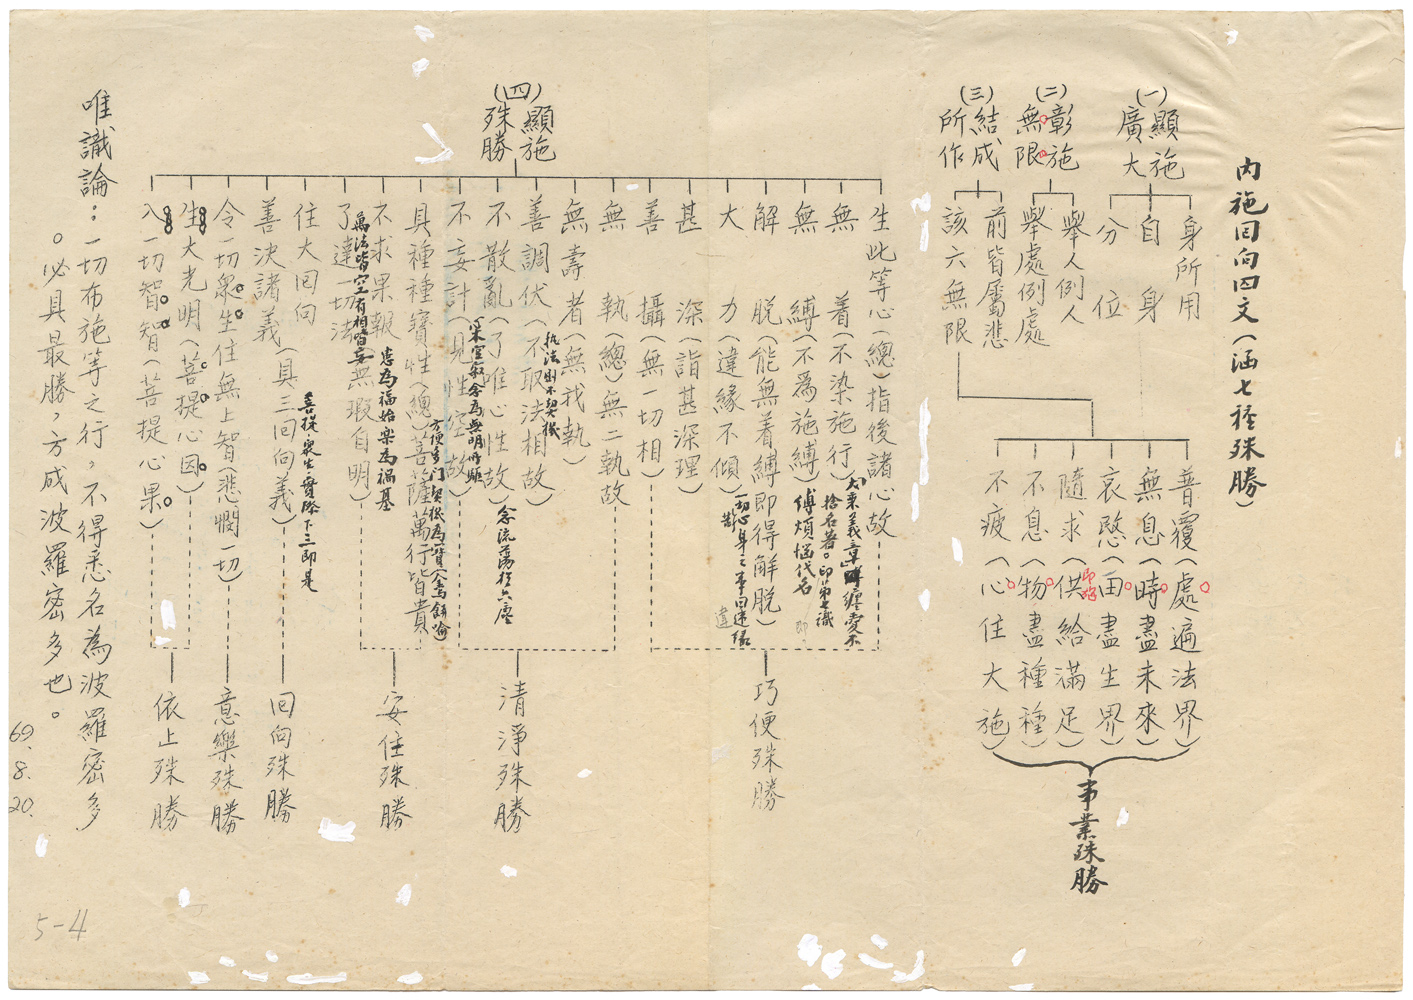 內施回向四文(涵七種殊勝)
(一)顯施廣大
身所用
自身
分位
(二)彰施無限
舉人例人
舉處例處
(三)結成所作
前皆屬悲
該六無限
普覆(處遍法界)
無息(時盡未來)
哀愍(田盡生界)
隨求(供給滿足)
不息(物盡種種)
不疲(心住大施)
事業殊勝
(四)顯施殊勝
生此等心(總)指後諸心故
無着(不染施行)
捨名著。印第七識
無縛(不為施縛)
縛煩惱代名
解脫(能無着縛即得解脫)
大力(違緣不傾)
甚深(詣甚深理)
善攝(無一切相)
巧便殊勝
無執(總)無二執故
無壽者(無我執)
善調伏(不取法相故)
執法則不契機
不散亂(了唯心性故)
念流蕩於六塵
不妄計(見性空故)
本空寂念為無明所驅
清淨殊勝
具種種寶性(總)菩薩萬行皆貴
方便多門契機為寶(金餅喻)
不求果報
患為福始樂為禍基
了達一切法(無瑕自明)
為法皆空有相皆妄
安住殊勝
住大回向
善決諸義(具三回向義)
菩提眾生實際下三即是
回向殊勝
令一切眾生住無上智(悲憫一切)
意樂殊勝
生大光明(菩提心因)
入一切智智(菩提心果)
依止殊勝
唯識論：一切布施等之行，不得悉名為波羅密多
。必具最勝，方成波羅密多也。
69.8.20.
5-4